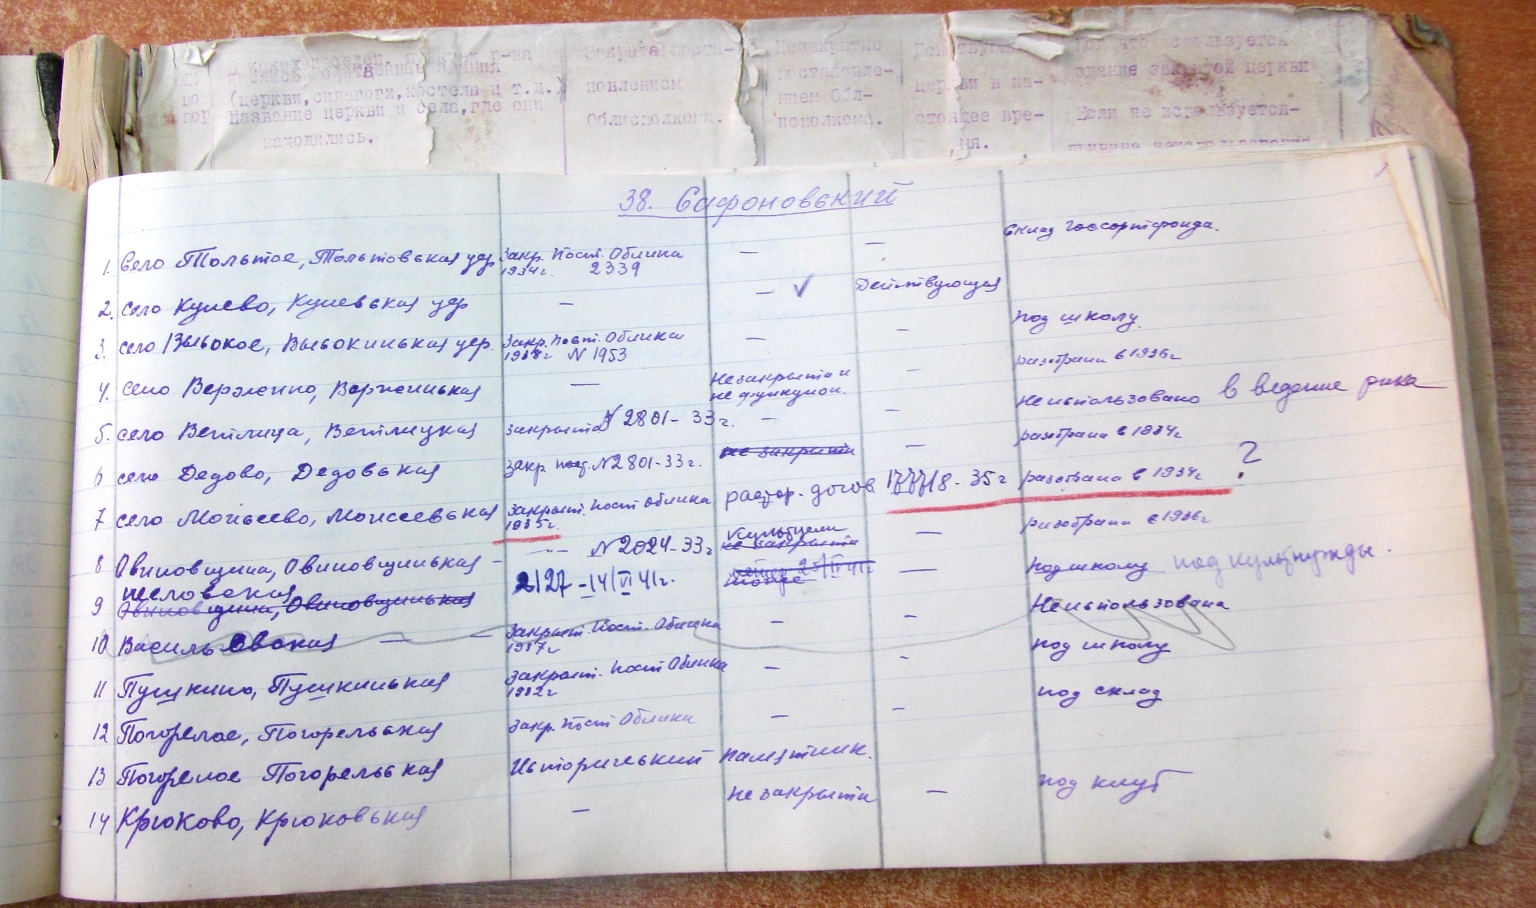 в каких поселен. р-на
(церкви, синагоги, костелы и т.д.)
Название церкви и села, где они
находились.
Закрыте постановлением
Облисполкома.
Незакрытие
постановле-
нием Обл-
исполкома.
Действующ.
церкви в на-
стоящее вре-
мя.
Для что используется
здание закрытой церкви
Если не используется-
38. Сафоновский
1. Село Толстое, Толстовская цер. Закр. Пост. Облика 1934г. 2339 — — Склад Госсортфонда.
2. село Кулево, Кулевская цер — — √ Действующая
3. село Высокое, Высокинская цер. Закр. Пост. Облика 1938г N 1953 — — под школу.
4. село Вержено, Верженская — Незакрыта и не функцион. — разобрана в 1936г
5. село Ветлица, Ветлицкая закрыта N 2801-33г. — — Неиспользовано в ведение рика
6 село Дедово, Дедовская закр. пост. N2801-33г. не закрыта — разобрана в 1934г
7 село Мойсеево, Моисеевская Закрыт. Пост Облика 1935г. растор. догов 1718-35г разобрана в 1934г ?
8 Овиновщина, Овиновщинская — N2024-33г Культцели не закрыта — разобрана в 1936г
9 Овиновщина, Овиновщинская 2127-14/VI 41г. — под школу под культнужды.
10 Васильевская — — Закрыт. Пост. Облика 1937г — — Неиспользована
11 Пушкино, Пушкинская Закрыт. Пост Облика 1932г — — под школу
12 Погорелое, Погорельская Закр. Пост Облика — — под склад
13 Погорелое Погорельская Исторический памятник.
14 Крюково, Крюковская — не закрыта — под клуб